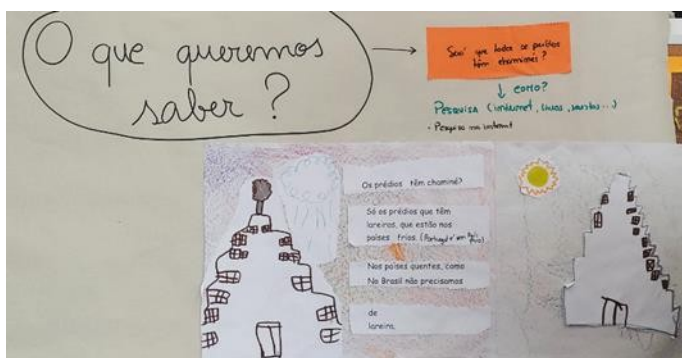 O que queremos
saber?
Será que todos os prédios
têm chaminés?
como?
Pesquisa (internet, livros,
• Pesquisa na internet
Os prédios têm chaminé?
Só os prédios que têm
lareiras, que estão nos
países frios. (Portugal é um país
frio).
Nos países quentes, como
No Brasil não precisamos
de
lareira.